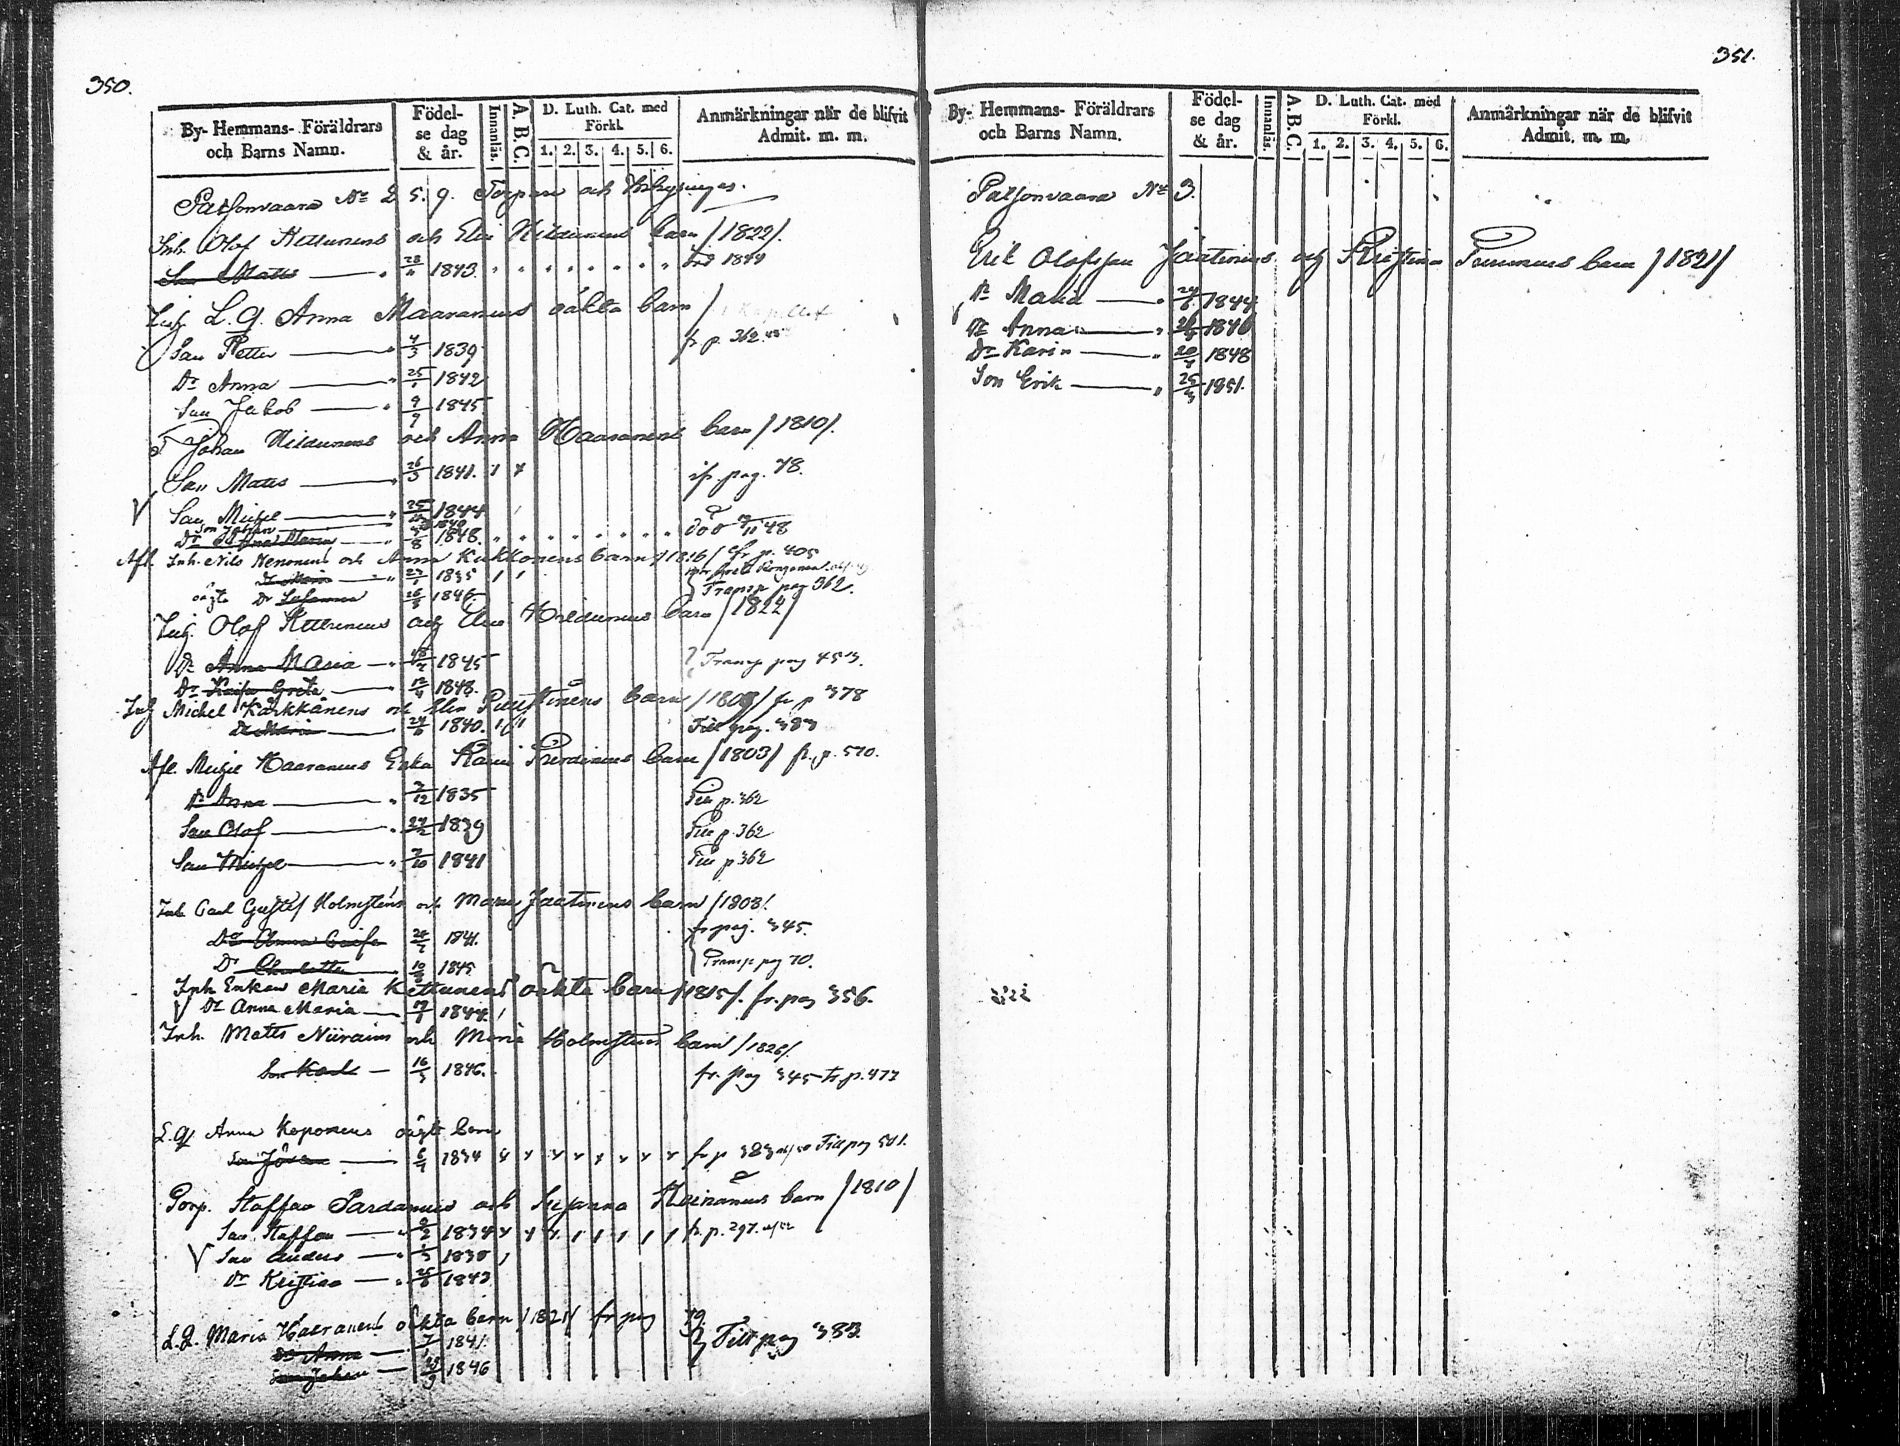 350.
By- Hemmans- Föräldrars och Barns Namn.
Födelse dag & år.
Innanläs.
A.B.C.
D. Luth. Cat. med Förkl.
1. 2. 3. 4. 5. 6.
Anmärkningar när de blifvit Admit. m. m.
Patsonvaara No 2 5. 9. Torpare och
Inh. Olof Kettunens och Elin Hildunens barn /1822/.
Son Matts 28/11 1843. död 1844
Inh. L. Q. Anna Maaranens oäkta barn /
Son Petter 4/3 1839 fr p. 362
Dr Anna 25/1 1842
Son Jakob 9/9 1845
Johan Hildunens och Anna Haaranens barn /1810/.
Son Matts 26/3 1841. pag. 78.
Son Michel 25/12 1844
Son Johan 1840
Dr Anna Maria 5/8 1848. död 48
Afl. Inh. Nils Nenonens och Anna Kukkonens barn /1816/ fr p. 405
Dr Maria 27/1 1835
oägta Dr Susanna 26/8 1846. Transp pag 362.
Inh. Olof Kettunens och Elin Hildunens barn /1822/
Dr Anna Maria 18/2 1845 Transp pag 453.
Dr Kaisa Greta 12/4 1848.
Inh Michel Karkkänens och Elin Puustinens barn /1808/ fr p 378
Dr Maria 24/6 1840. Till pag. 383
Afl. Michel Haaranens Enka Karin Purdinens barn /1803/ fr. p. 570.
Dr Anna 2/12 1835 Till p. 362
Son Olof 27/2 1839 Till p. 362
Son Michel 2/10 1841 Till p 362
Inh Carl Gustaf Holmsténs och Maria Jaatinens barn /1808/.
Dr Anna Caisa 24/2 1841. fr pag. 345.
Dr Charlotta 10/5 1845 Transp pag 70.
Inh Enkan Maria Kettunens oäkta barn /1815/. fr. pag 356.
Dr Anna Maria 17/1 1844.
Inh. Matts Niiranens och Maria Holmsténs barn /1826/.
Son Karl 16/3 1846. fr. pag 345 Tr p. 477
L. Q. Anna Koponens oägt barn
Son Johan 6/1 1834 fr p 383 Till pag 501.
Torp. Staffan Pardanens och Susanna Heinänens barn /1810/
Son Staffan 2/2 1834 fr p. 297.
Son Anders 1/3 1838
Dr Kristina 25/8 1843
L. Q. Maria Haaranens oäkta barn /1821/ fr pag 79.
Dr Anna 7/1 1841. Till pag 383
Son Johan 18/9 1846
351.
By- Hemmans- Föräldrars och Barns Namn.
Födelse dag & år.
Innanläs.
A.B.C.
D. Luth. Cat. med Förkl.
1. 2. 3. 4. 5. 6.
Anmärkningar när de blifvit Admit. m. m.
Patsonvaara No 3.
Erik Olofsson Jäätinens och Kristina Turunens barn /1821/
Dr Maria 24/6 1844
Dr Anna 1846
Dr Karin 20/4 1848
Son Erik 25/3 1851.